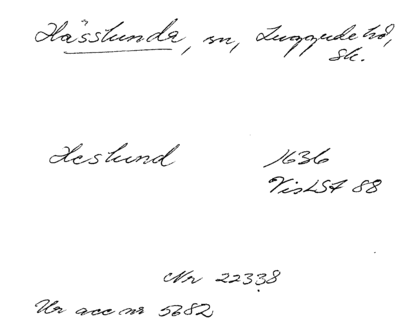 Hässlunda, sn, Luggude hd,
Sk.
Heslund 1636
VisLSA 88
Nr 22338
Ur acc nr 5682